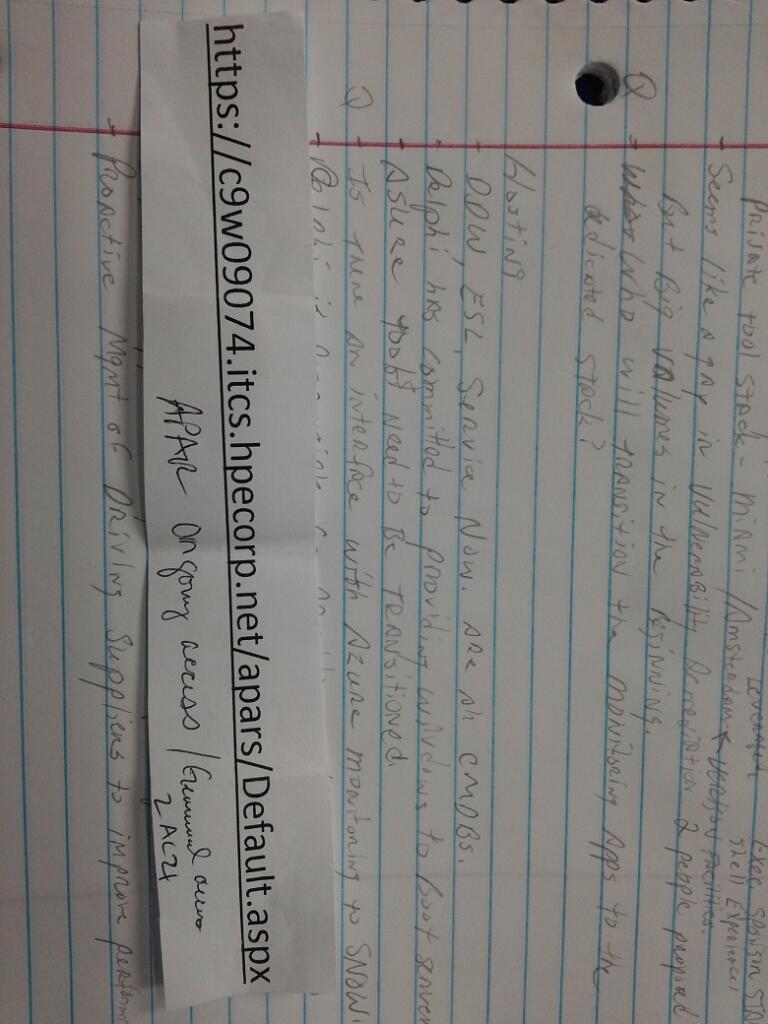 Leveraged Exec Sponsor
Shell Experience
Private tool stack - Miami / Amsterdam Verizon Facilities.
- Seems like a gap in Vulnerability Remediation 2 people proposed
But Big Volumes in the Beginning.
Q - Who will transition the monitoring Apps to the
dedicated stack?
Hosting
- DDW, ESL, Service Now. Are all CMDBs.
- Delphi has committed to providing windows to Boot servers
- Asure 400bt Need to Be Transitioned
Q - Is there an interface with Azure monitoring to SNOW
https://c9w09074.itcs.hpecorp.net/apars/Default.aspx
APAR ongoing access /
- Proactive Mgmt of Driving Suppliers to improve